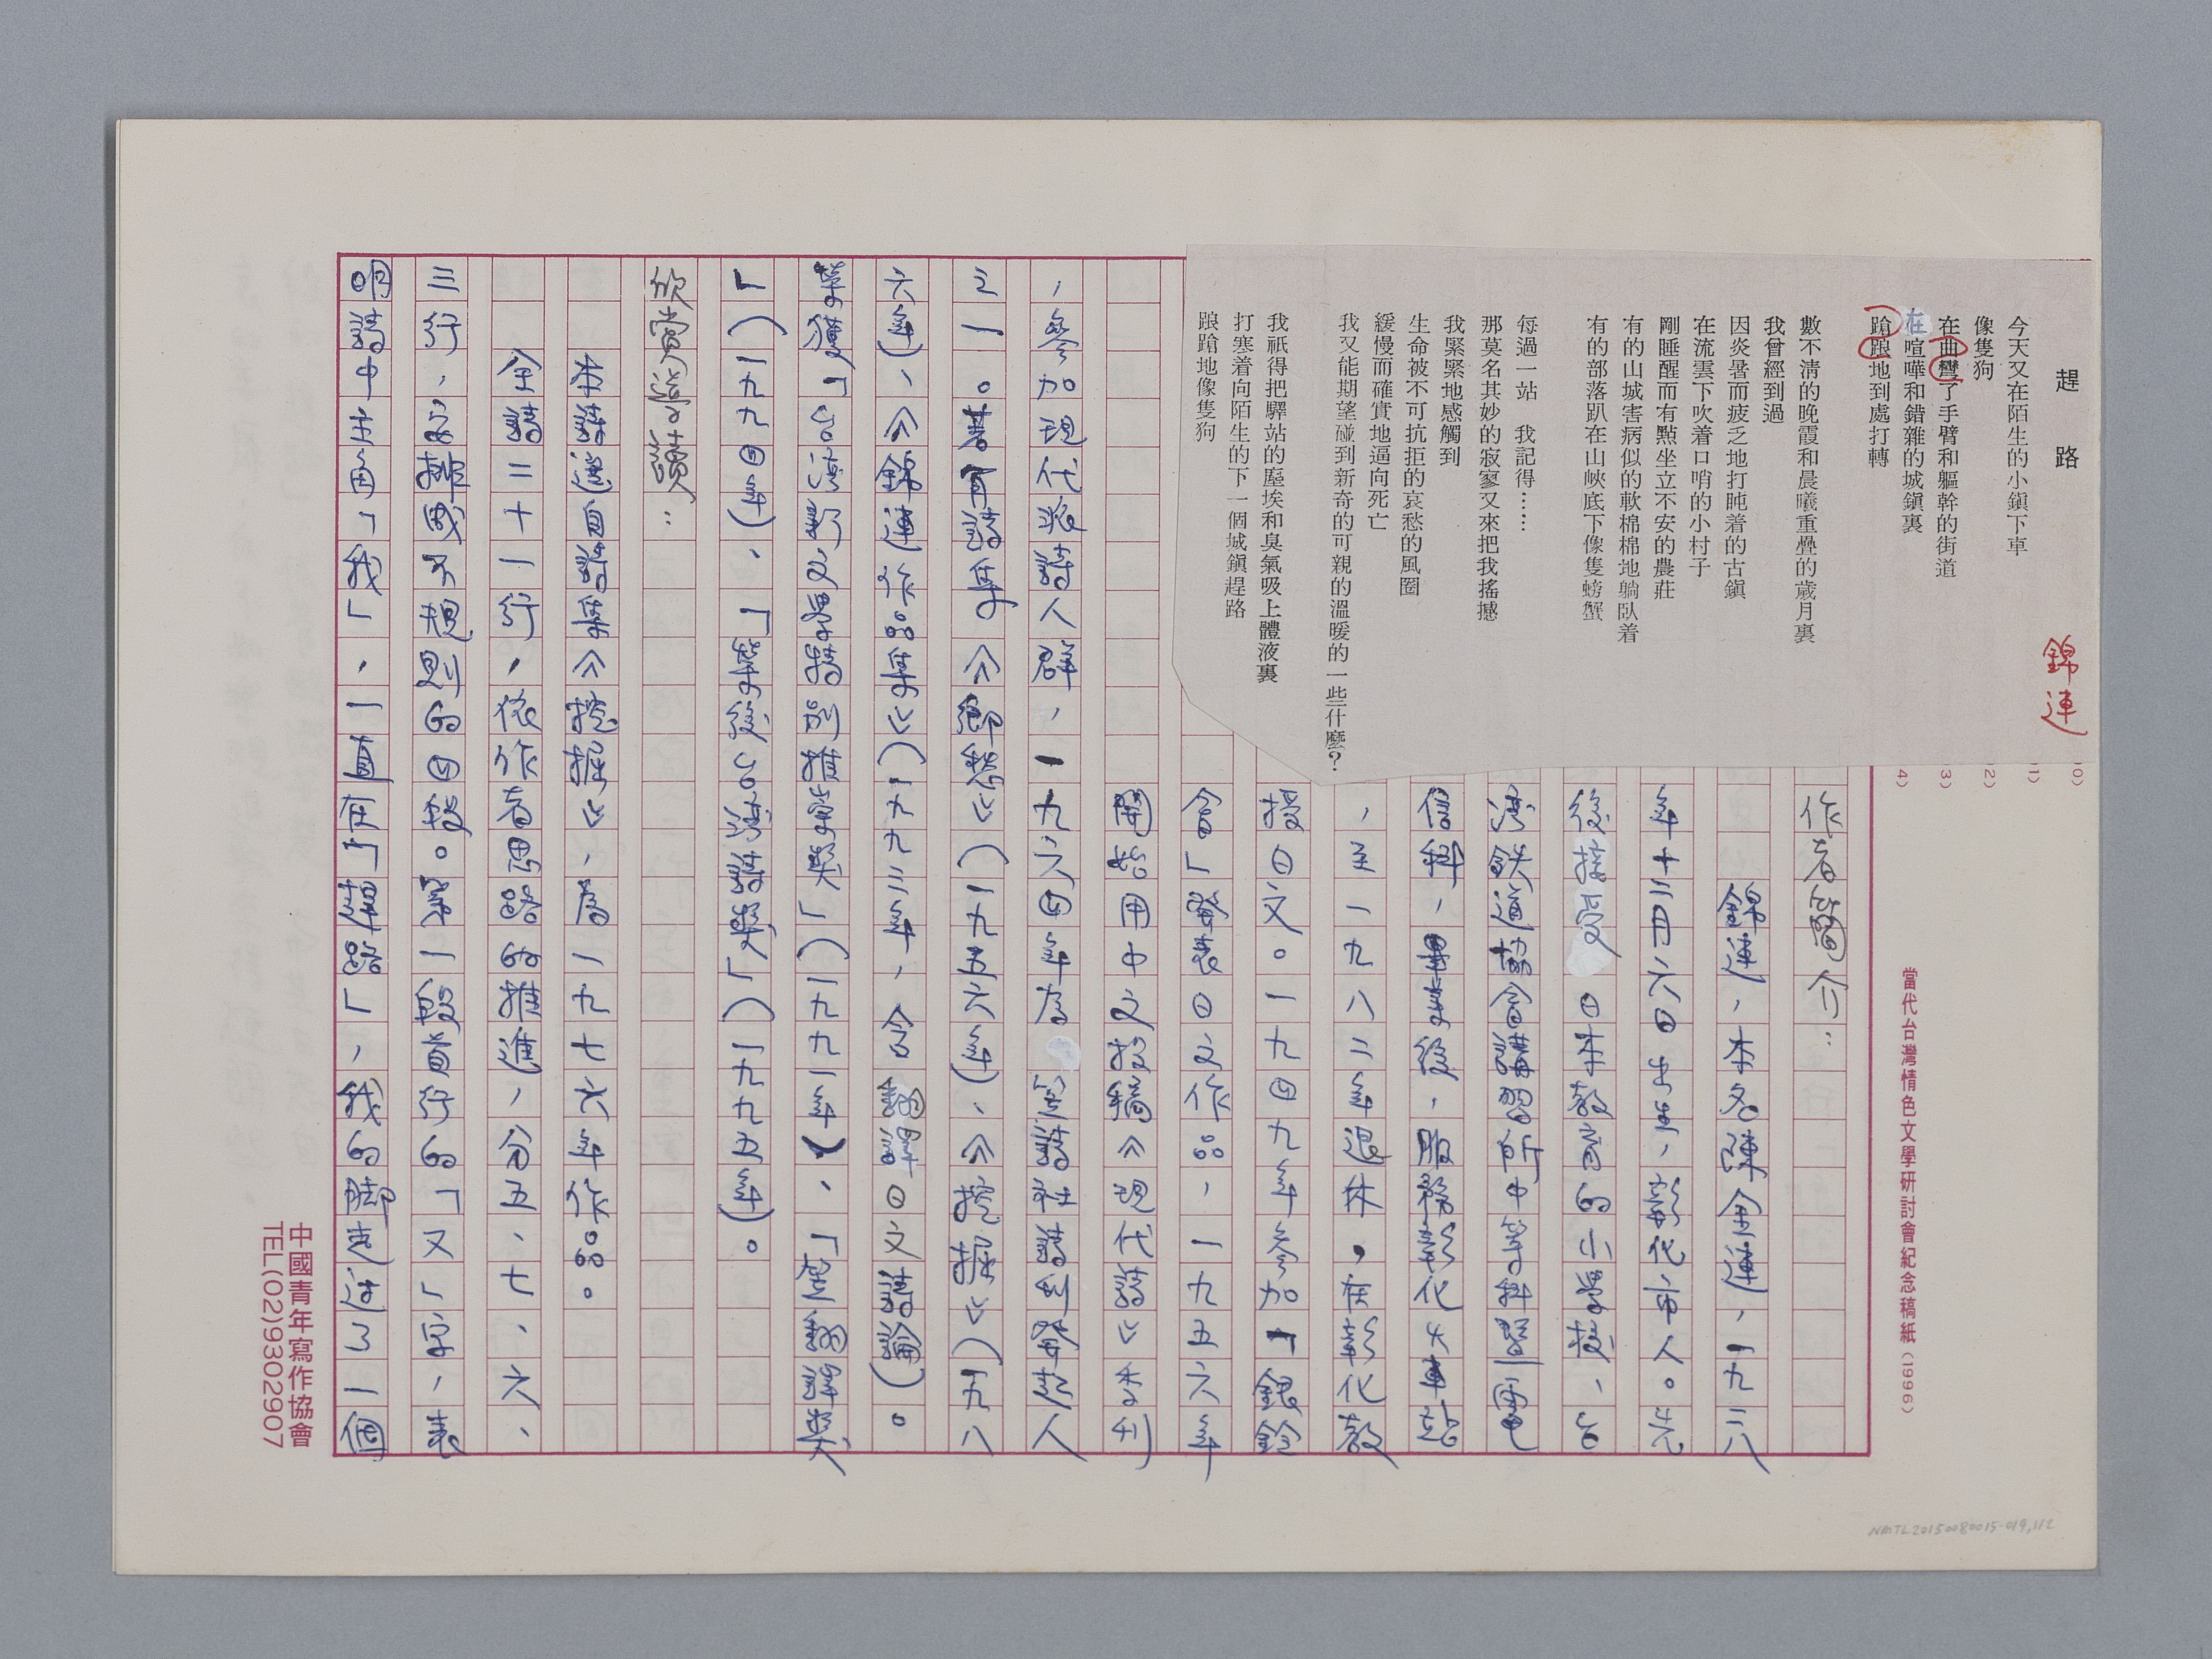 趕路
錦連
今天又在陌生的小鎮下車
像隻狗
在曲彎了手臂和軀幹的街道
在喧嘩和錯雜的城鎮裏
蹌踉地到處打轉
數不清的晚霞和晨曦重疊的歲月裏
我曾經到過
因炎暑而疲乏地打盹着的古鎮
在流雲下吹着口哨的小村子
剛睡醒而有點坐立不安的農莊
有的山城害病似的軟棉棉地躺臥着
有的部落趴在山峽底下像隻螃蟹
每過一站 我記得……
那莫名其妙的寂寥又來把我搖撼
我緊緊地感觸到
生命被不可抗拒的哀愁的風圈
緩慢而確實地逼向死亡
我又能期望碰到新奇的可親的溫暖的一些什麼？
我祇得把驛站的塵埃和臭氣吸上體液裏
打寒着向陌生的下一個城鎮趕路
踉蹌地像隻狗
0)
1)
2)
3)
4)
當代台灣情色文學研討會紀念稿紙（1996）
作者簡介：
錦連，本名陳金連，一九二八
年十二月六日出生，彰化市人。先
後接受日本教育的小學校、台
灣鉄道協會講習所中等科暨電
信科，畢業後，服務彰化火車站
，至一九八二年退休，在彰化教
授日文。一九四九年參加「銀鈴
會」發表日文作品，一九五六年
開始用中文投稿《現代詩》季刊
，參加現代派詩人群，一九六四年為笠詩社詩刊發起人
之一。著有詩集《鄉愁》（一九五六年）、《挖掘》（一九八
六年）、《錦連作品集》（一九九三年，含翻譯日文詩論）。
曾獲「台灣新文學特別推崇獎」（一九九一年）、「笠翻譯獎
」（一九九四年）、「榮後台灣詩獎」（一九九五年）。
欣賞導讀：
本詩選自詩集《挖掘》，為一九七六年作品。
全詩二十一行，依作者思路的推進，分五、七、六、
三行，安排成不規則的四段。第一段首行的「又」字，表
明詩中主角「我」，一直在「趕路」，我的脚走过了一個
中國青年寫作協會
TEL(02)9302907
NMTL20150080015-019,1/2